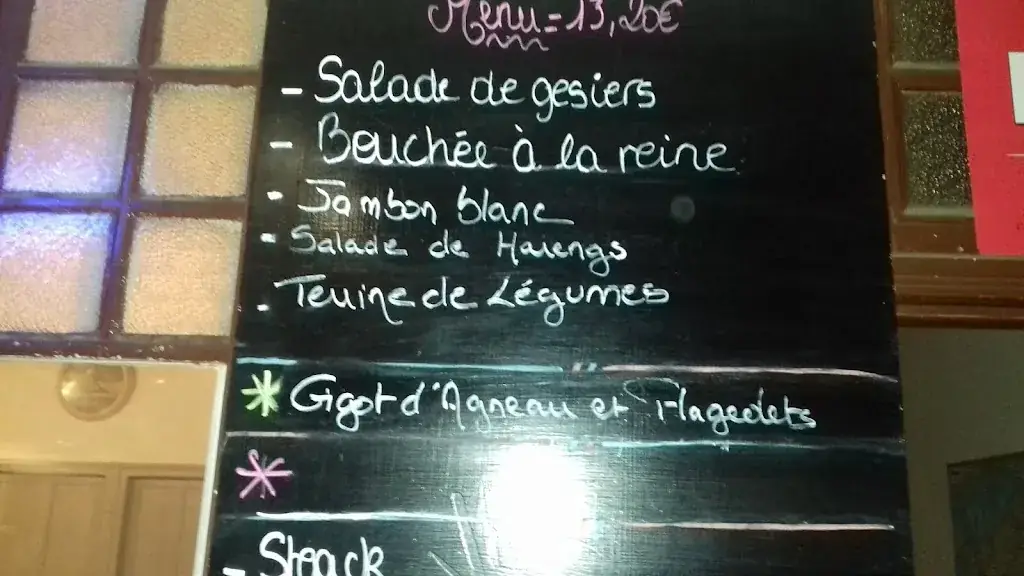 Menu = 13,20€
- Salade de gesiers
- Bouchée à la reine
- Jambon blanc
- Salade de Harengs
- Terrine de Légumes
* Gigot d'Agneau et Flageolets
*
- Steack